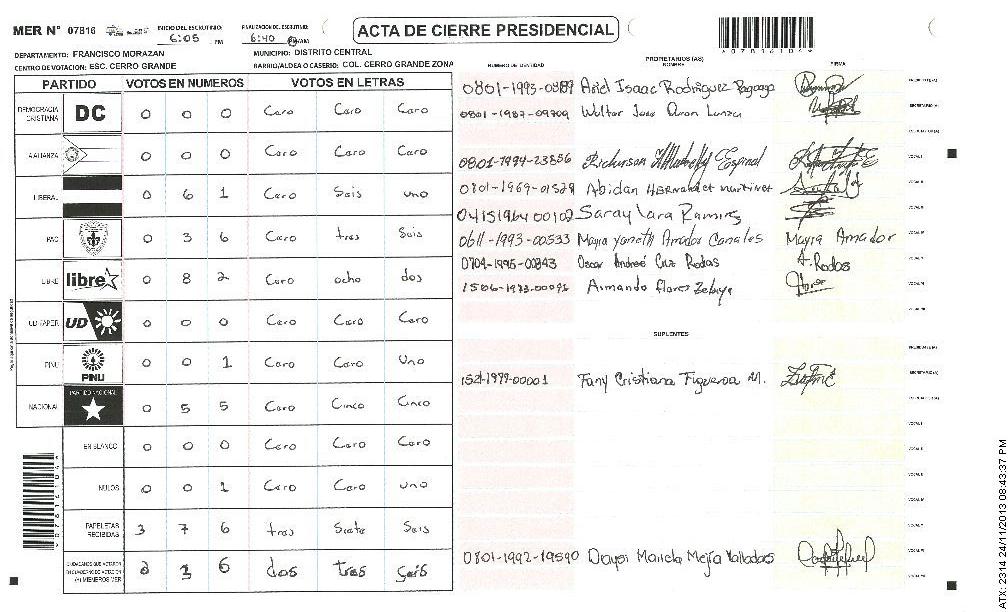 MER N° 07816 INICIO DEL ESCRUTINIO: 6:05 PM FINALIZACION DEL ESCRUTINIO: 6:40 PM/AM ACTA DE CIERRE PRESIDENCIAL
DEPARTAMENTO: FRANCISCO MORAZAN MUNICIPIO: DISTRITO CENTRAL
CENTRO DE VOTACION: ESC. CERRO GRANDE BARRIO/ALDEA O CASERIO: COL. CERRO GRANDE ZONA
PROPIETARIOS (AS)
NUMERO DE IDENTIDAD NOMBRE FIRMA
PARTIDO VOTOS EN NUMEROS VOTOS EN LETRAS
DEMOCRACIA CRISTIANA DC 0 0 0 Cero Cero Cero
ALIANZA 0 0 0 Cero Cero Cero
LIBERAL 0 6 1 Cero Seis uno
PAC 0 3 6 Cero tres Seis
LIBRE libre 0 8 2 Cero ocho dos
UD-FAPER UD 0 0 0 Cero Cero Cero
PINU PINU 0 0 1 Cero Cero Uno
NACIONAL PARTIDO NACIONAL 0 5 5 Cero Cinco Cinco
EN BLANCO 0 0 0 Cero Cero Cero
NULOS 0 0 1 Cero Cero uno
PAPELETAS RECIBIDAS 3 7 6 tres Siete Seis
CIUDADANOS QUE VOTARON 2 3 6 dos tres Seis
0801-1993- Ariel Isaac Rodriguez
0801-1987-09709 Walter Jose
0801-1994-23856 Espinal
0801-1969-01529 Abidan Hernandez Martinez
0415196400102 Saray Lara Ramires
0611-1993-00533 Mayra Yaneth Amador Canales Mayra Amador
0704-1995-00843 Oscar Andree Cruz Rodas A. Rodas
Armando Flores Zelaya
SUPLENTES
1521-1979-00001 Fany Cristiana Figueroa M.
0801-1992-19590 Daysi Mariela Mejía Valladares
07816104
ATX: 2314 24/11/2013 08:43:37 PM